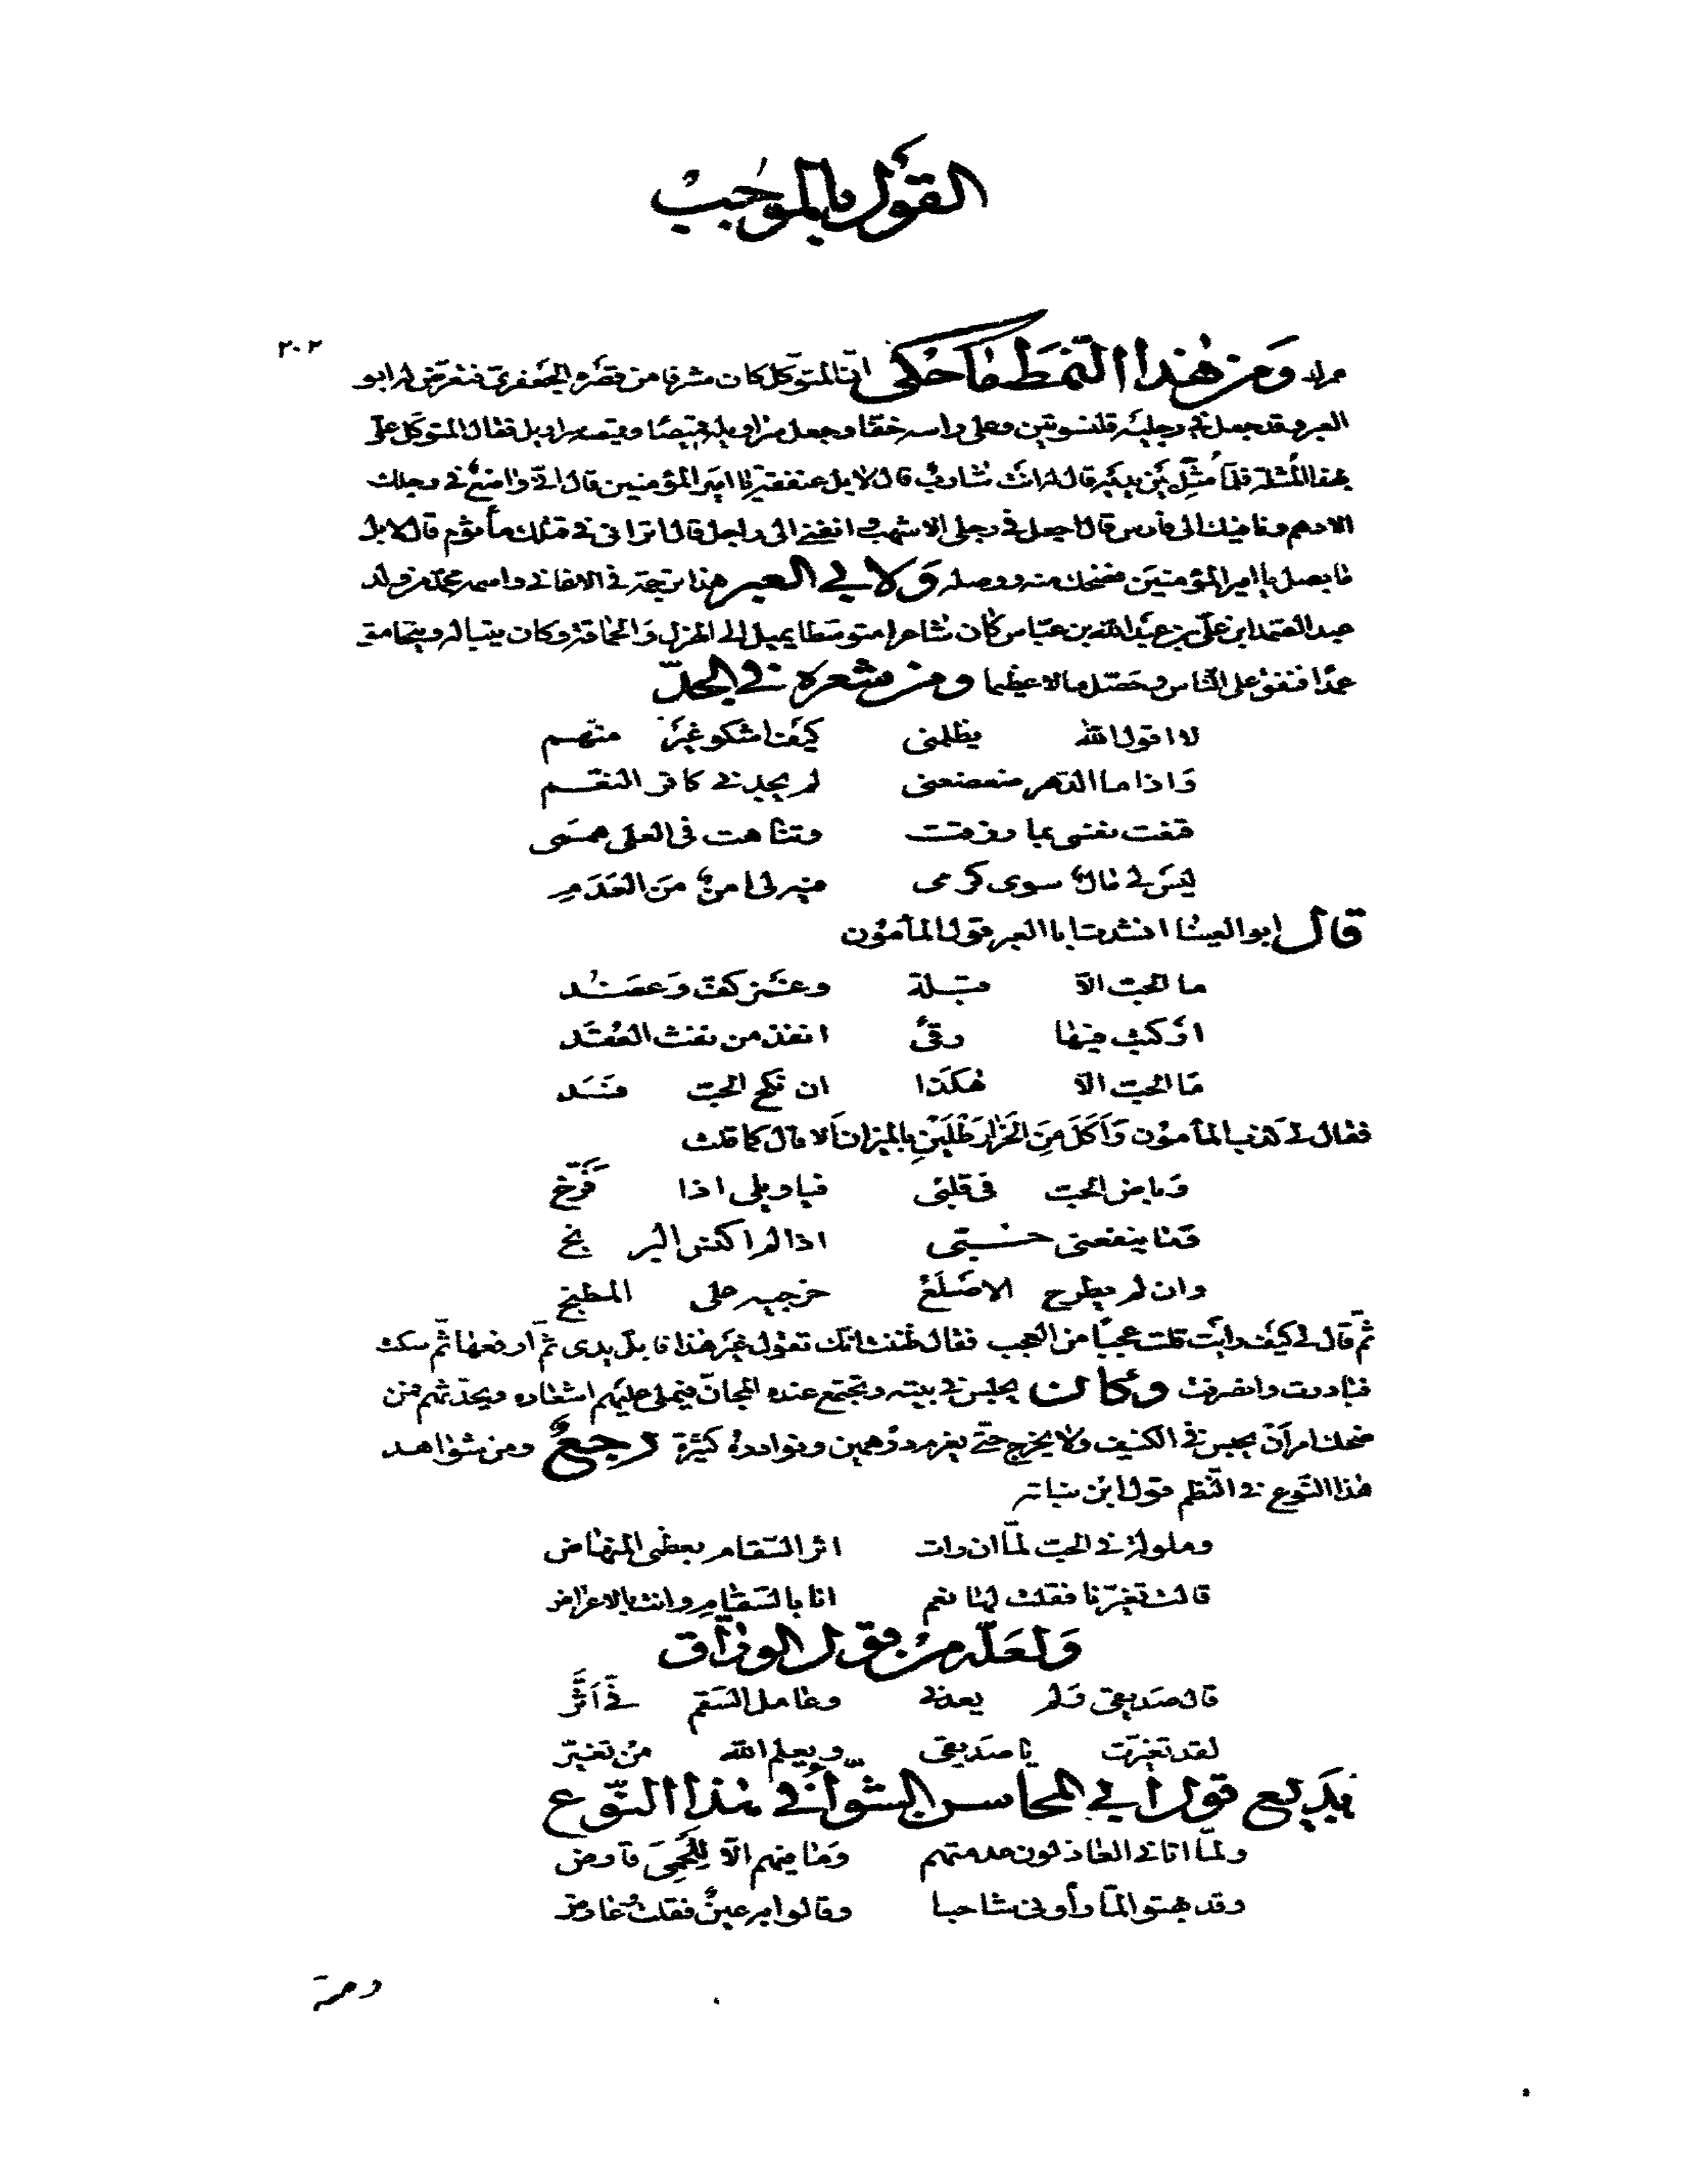 القول بالموجب
٢٠٢
مراد ومن هذا النمط ما حكى ان المتوكل كان مشرفا من قصره الجعفري فتعرض له ابو
العبر وقد جعل في رجليه قلنسوتين وعلى راسه خفا وجعل سراويله قميصا وقميصه سراويل فقال المتوكل علي
بهذا المثلة فلما مثل بين يديه قال له انت شارب قال لا بل عنفقة يا امير المؤمنين قال اني واضع في رجلك
الادهم ونافيك الى فارس قال اجعل في رجلي الاشهب وانفني الى راجل قال اتراني في قتلك مأثوم قال لا بل
ما بصل يا امير المؤمنين فضحك منه ووصله ولابي العبر هذا ترجمة في الاغاني واسمه محمد من ولد
عبد الصمد ابن علي بن عبد الله بن عباس كان شاعرا متوسطا يميل الى الهزل والحماقة وكان يتباله ويتحامق
عمدا فنفق على الناس وحصل مالا عظيما ومن شعره في الجد
لا اقول الله يظلمني كيف اشكو غير متهم
واذا ما الدهر ضعضعني لم يجدني كافر النعم
قنعت نفسي بما رزقت وتناهت في العلى هممي
ليس لي مال سوى كرمي فيه لي امن من العدم
قال ابو العينا انشدت ابا العبر قول المأمون
ما الحب الا قبلة وغمز كف وعضد
او كتب فيها رقى انفذ من نفث العقد
ما الحب الا هكذا ان نكح الحب فسد
فقال لي كذب المأمون واكل من الخرا رطلين بالميزان ألا قال كما قلت
وباض الحب في قلبي فيا ويلي اذا فرخ
وما ينفعني حبي اذا لم اكنس البربخ
وان لم يطرح الاصلع خرجيه على المطبخ
ثم قال لي كيف رأيت قلت عجبا من العجب فقال ظننت انك تقول غير هذا فابل يدي ثم ارفعها ثم سكت
فبادرت وانصرفت وكان يجلس في بيته وتجتمع عنده المجان فيملي عليهم اشعاره ويحدثهم فمن
ضحك امر ان يحبس في الكنيف ولا يخرج حتى يغرم درهمين ونوادره كثيرة رجع ومن شواهد
هذا النوع في النظم قول ابن نباته
وملولة في الحب لما ان رات اثر السقام بعظمي المنهاض
قالت تغيرنا فقلت لها نعم انا بالسقام وانت بالاعراض
ولعله من قول الوراق
قال صديقي ولم يعدني وعامل السقم في اثر
لقد تغيرت يا صديقي ويعلم الله من تغير
بديع قول ابي المحاسن الشوا في هذا النوع
ولما اتاني العاذلون عدمتهم وما فيهم الا للحمي قارض
وقد بهتوا لما رأوني شاحبا وقالوا به عين فقلت وعارض
وحمة